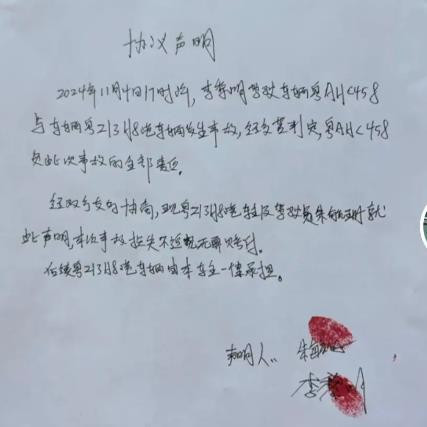 协议声明
2024年11月4日17时许,李孝明驾驶车辆粤AH<458
与车辆粤Z13H8港车辆发生事故,经交警判定,粤AH<458
负此次事故的全部责任。
经双方友好协商,现粤Z13H8港车主及驾驶员朱 就
此声明,本次事故损失不追究无需赔付。
后续粤Z13H8港车辆由本车主一律承担。
声明人:朱
李孝明